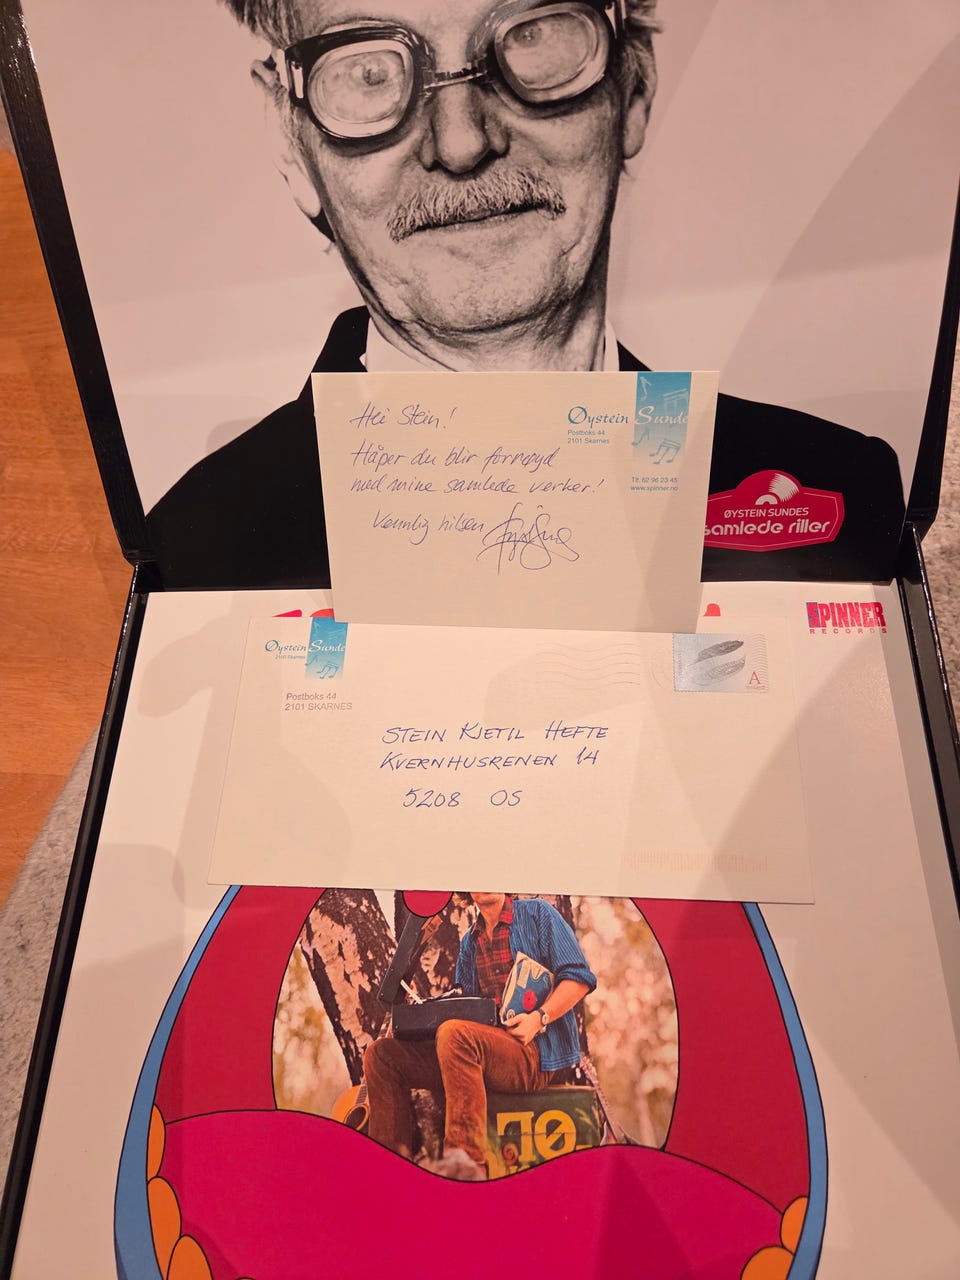 Hei Stein!
Håper du blir fornøyd
med mine samlede verker!
Vennlig hilsen
Øystein Sunde
Postboks 44
2101 Skarnes
Tlf. 62 96 23 45
www.spinner.no
ØYSTEIN SUNDES
samlede riller
SPINNER
RECORDS
Øystein Sunde
2101 Skarnes
Postboks 44
2101 SKARNES
A
STEIN KJETIL HEFTE
KVERNHUSRENEN 14
5208 OS
ØL